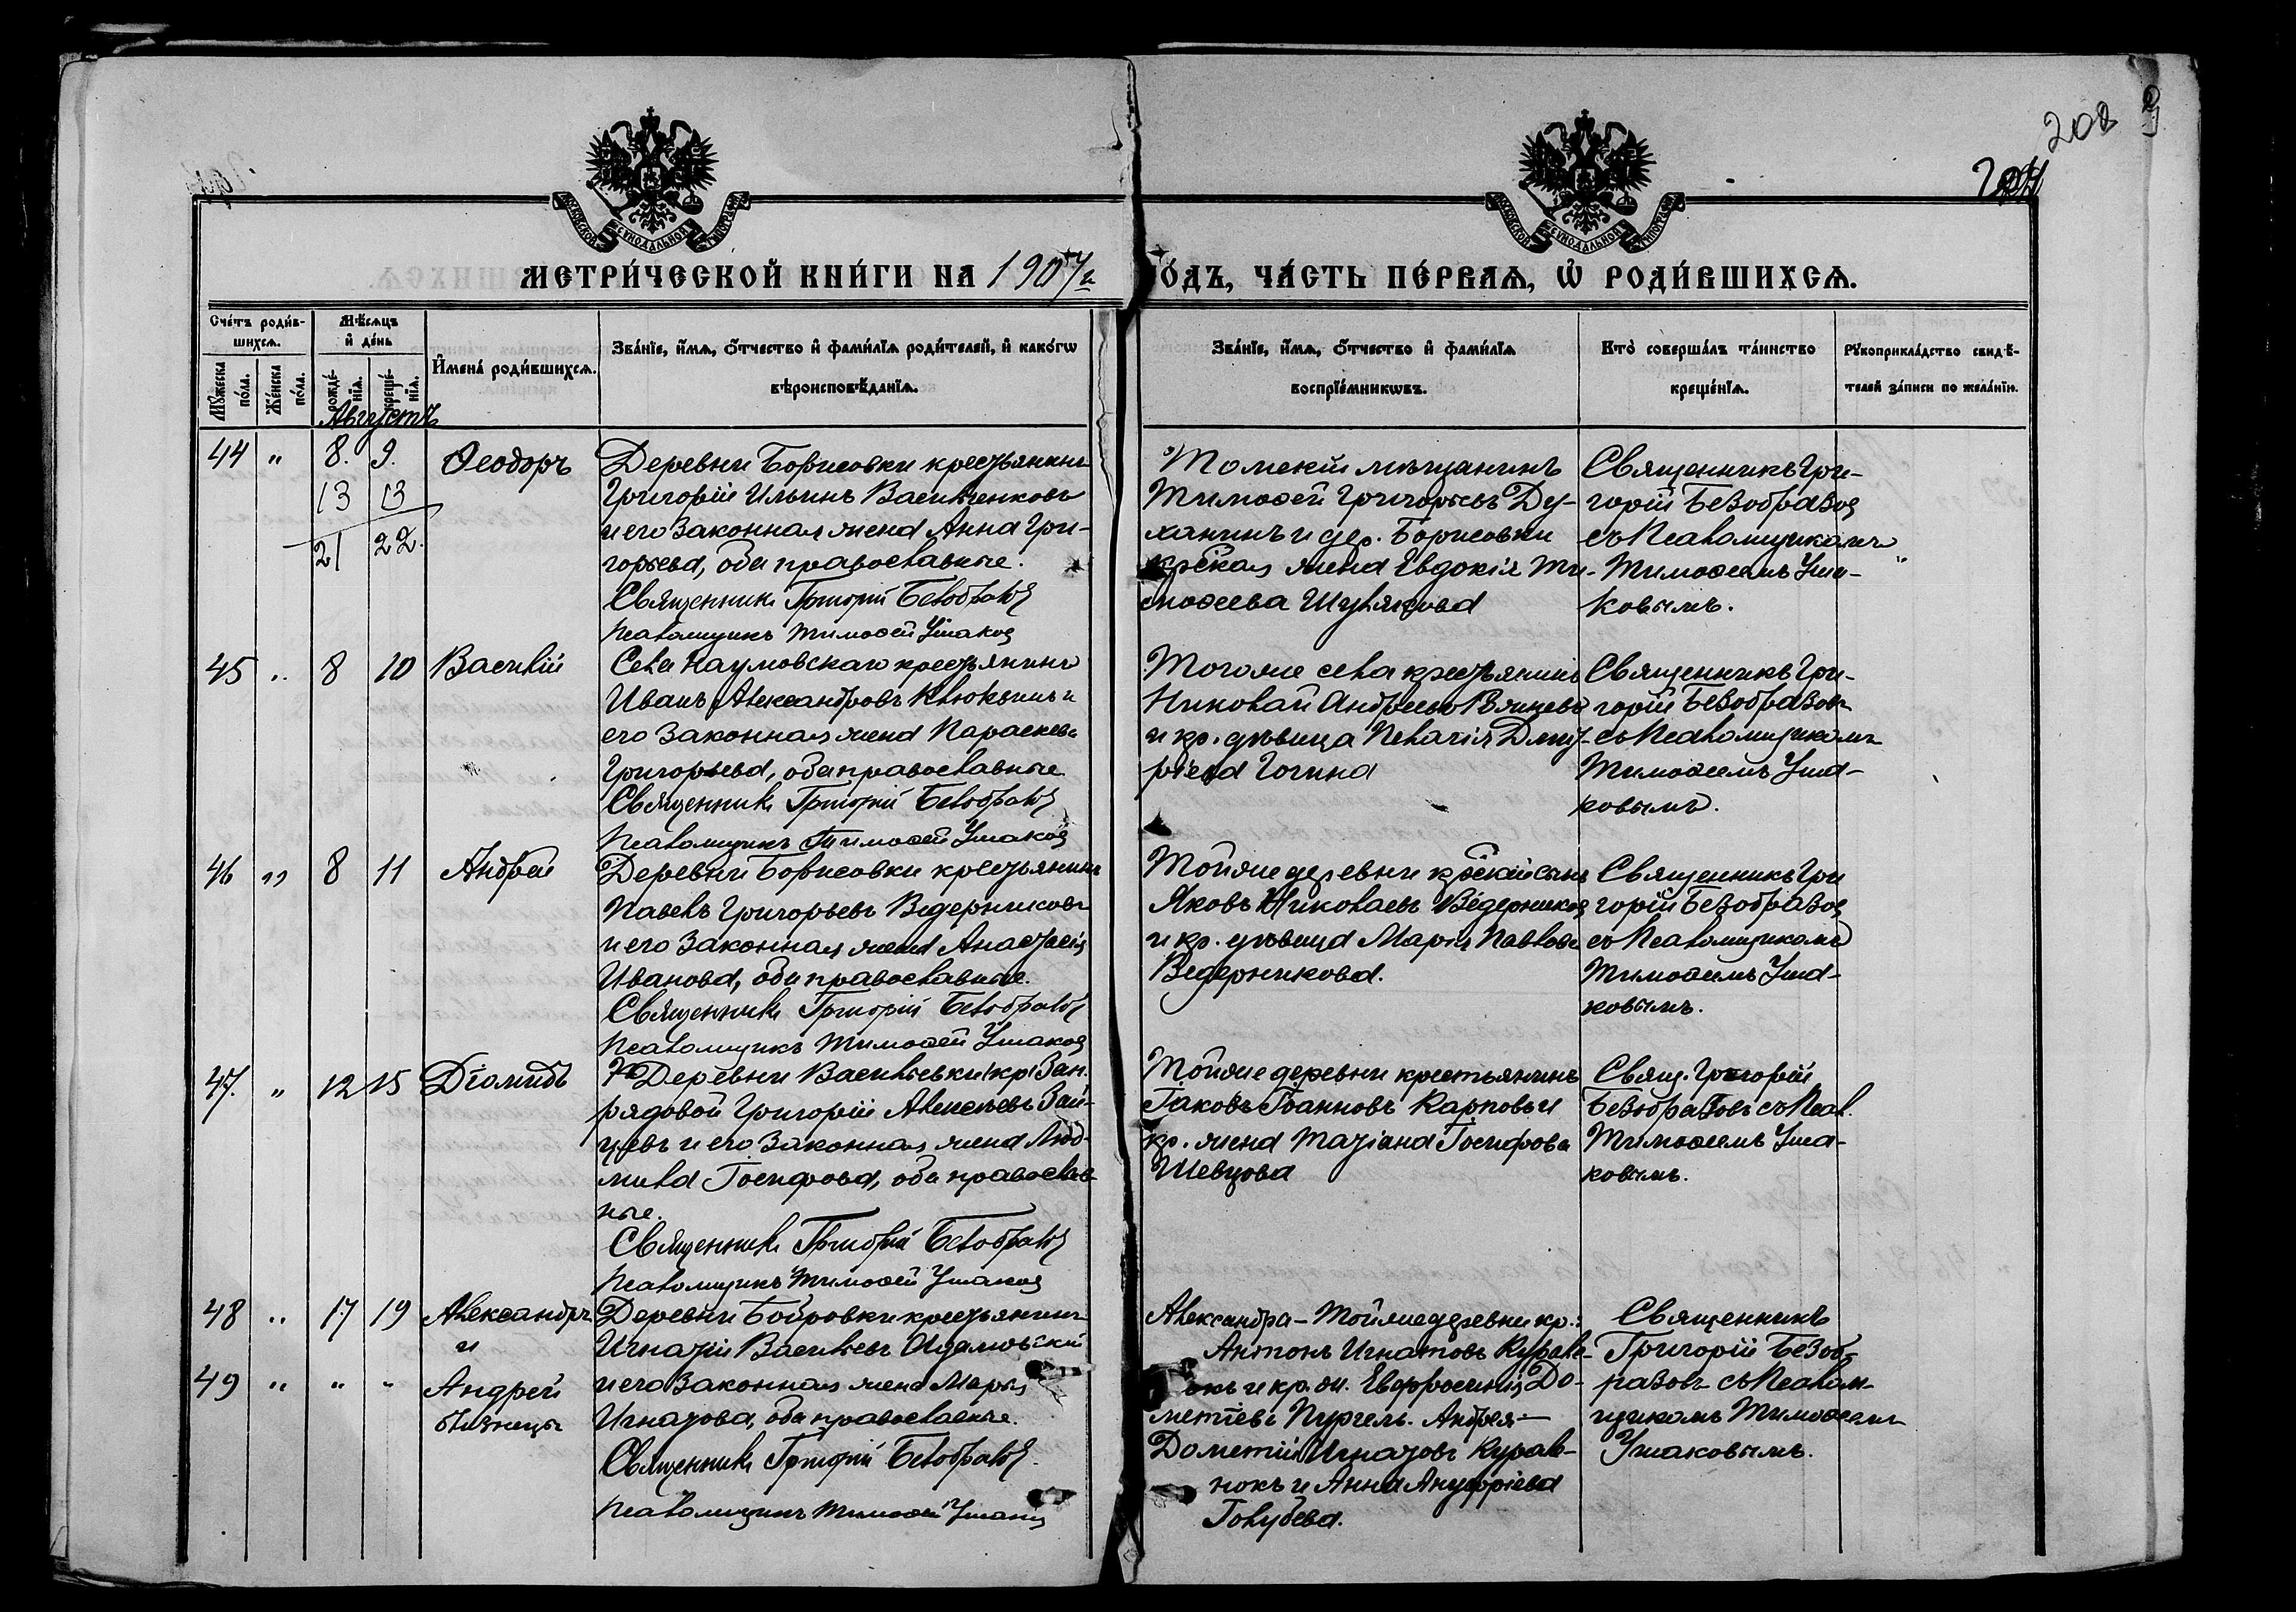 208
МЕТРИ́ЧЕСКОЙ КНИ́ГИ НА 1907 й
ГО́ДЪ, ЧА́СТЬ ПЕ́РВАЯ, Ѡ РОДИ́ВШИХСЯ.
Сче́тъ роди́в-
шихся.
Му́жеска по́ла.
Же́нска по́ла.
Мѣ́сяцъ
и де́нь
рожде́-
нія.
креще́-
нія.
Имена̀ роди́вшихся.
Зва́нїе, и́мя, о́тчество и фами́лїя роди́телей, и како́гѡ
вѣроисповѣ́данїя.
Зва́нїе, и́мя, о́тчество и фами́лїя
воспрїе́мниковъ.
Кто̀ соверша́лъ та́инство
креще́нїя.
Рꙋкоприкла́дство свидѣ́-
телей за́писи по жела́нїю.
Августъ
44 " 8. 9. Ѳеодоръ
13 13
21 22.
Деревни Борисовки крестьянинъ
Григорій Ильинъ Васильченковъ
и его законная жена Анна Гри-
горьева, оба православные.
Священникъ Григорій Безобразовъ
Псаломщикъ Тимоѳей Ушаковъ
Томскій мѣщанинъ
Тимоѳей Григорьевъ Ду-
ханинъ и дер. Борисовки
кр̃ская жена Евдокія Ти-
моѳеева Шулякова
Священникъ Гри-
горій Безобразов
съ Псаломщикомъ
Тимоѳеемъ Уша-
ковымъ.
45 " 8 10 Василій
Села Наумовскаго крестьянинъ
Иванъ Александровъ Клюкинъ и
его законная жена Параскева
Григорьева, оба православные
Священникъ Григорій Безобразовъ
Псаломщикъ Тимоѳей Ушаковъ
Того же села крестьянинъ
Николай Андреевъ
и кр. дѣвица Пелагія Дмит-
ріева Гогина
Священникъ Гри-
горій Безобразовъ
съ Псаломщикомъ
Тимоѳеемъ Уша-
ковымъ.
46 " 8 11 Андрей
Деревни Борисовки крестьянинъ
Павелъ Григорьевъ Ведерниковъ
и его законная жена Анастасія
Иванова, оба православные.
Священникъ Григорій Безобразовъ
Псаломщикъ Тимоѳей Ушаковъ
Той же деревни кр̃скій сынъ
Яковъ Николаевъ Ведерников
и кр. дѣвица Марія Павлова
Ведерникова.
Священникъ Гри
горій Безобразов
съ Псаломщикомъ
Тимоѳеемъ Уша-
ковымъ.
47. " 12 15 Діомидъ
Деревни Васильевки кр. Зап.
рядовой Григорій Алексѣевъ Зай-
цевъ и его законная жена Люд-
мила Іосифова, оба православ-
ные.
Священникъ Григорій Безобразовъ
Псаломщикъ Тимоѳей Ушаковъ
Той же деревни крестьянинъ
Іаковъ Іоанновъ Карповъ и
кр. жена Татіана Іосифова
Шевцова
Свящ. Григорій
Безобразовъ съ Псал.
Тимоѳеемъ Уша-
ковымъ.
48 " 17 19 Александръ
и
49 " " " Андрей
близнецы
Деревни Бобровки крестьянинъ
Игнатій Васильевъ
и его законная жена Марія
Игнатова, оба православные.
Священникъ Григорій Безобразовъ
Псаломщикъ Тимоѳей Ушаковъ
Александра – Той же деревни кр.:
Антонъ Игнатовъ Журавле-
окъ и кр. ж. Евфросинія До-
метіева Пургель. Андрея –
Дометій Игнатовъ Журав-
нокъ и Анна Ануфріева
Голубева.
Священникъ
Григорій Безоб-
разовъ съ Псалом-
щикомъ Тимоѳеемъ
Ушаковымъ.